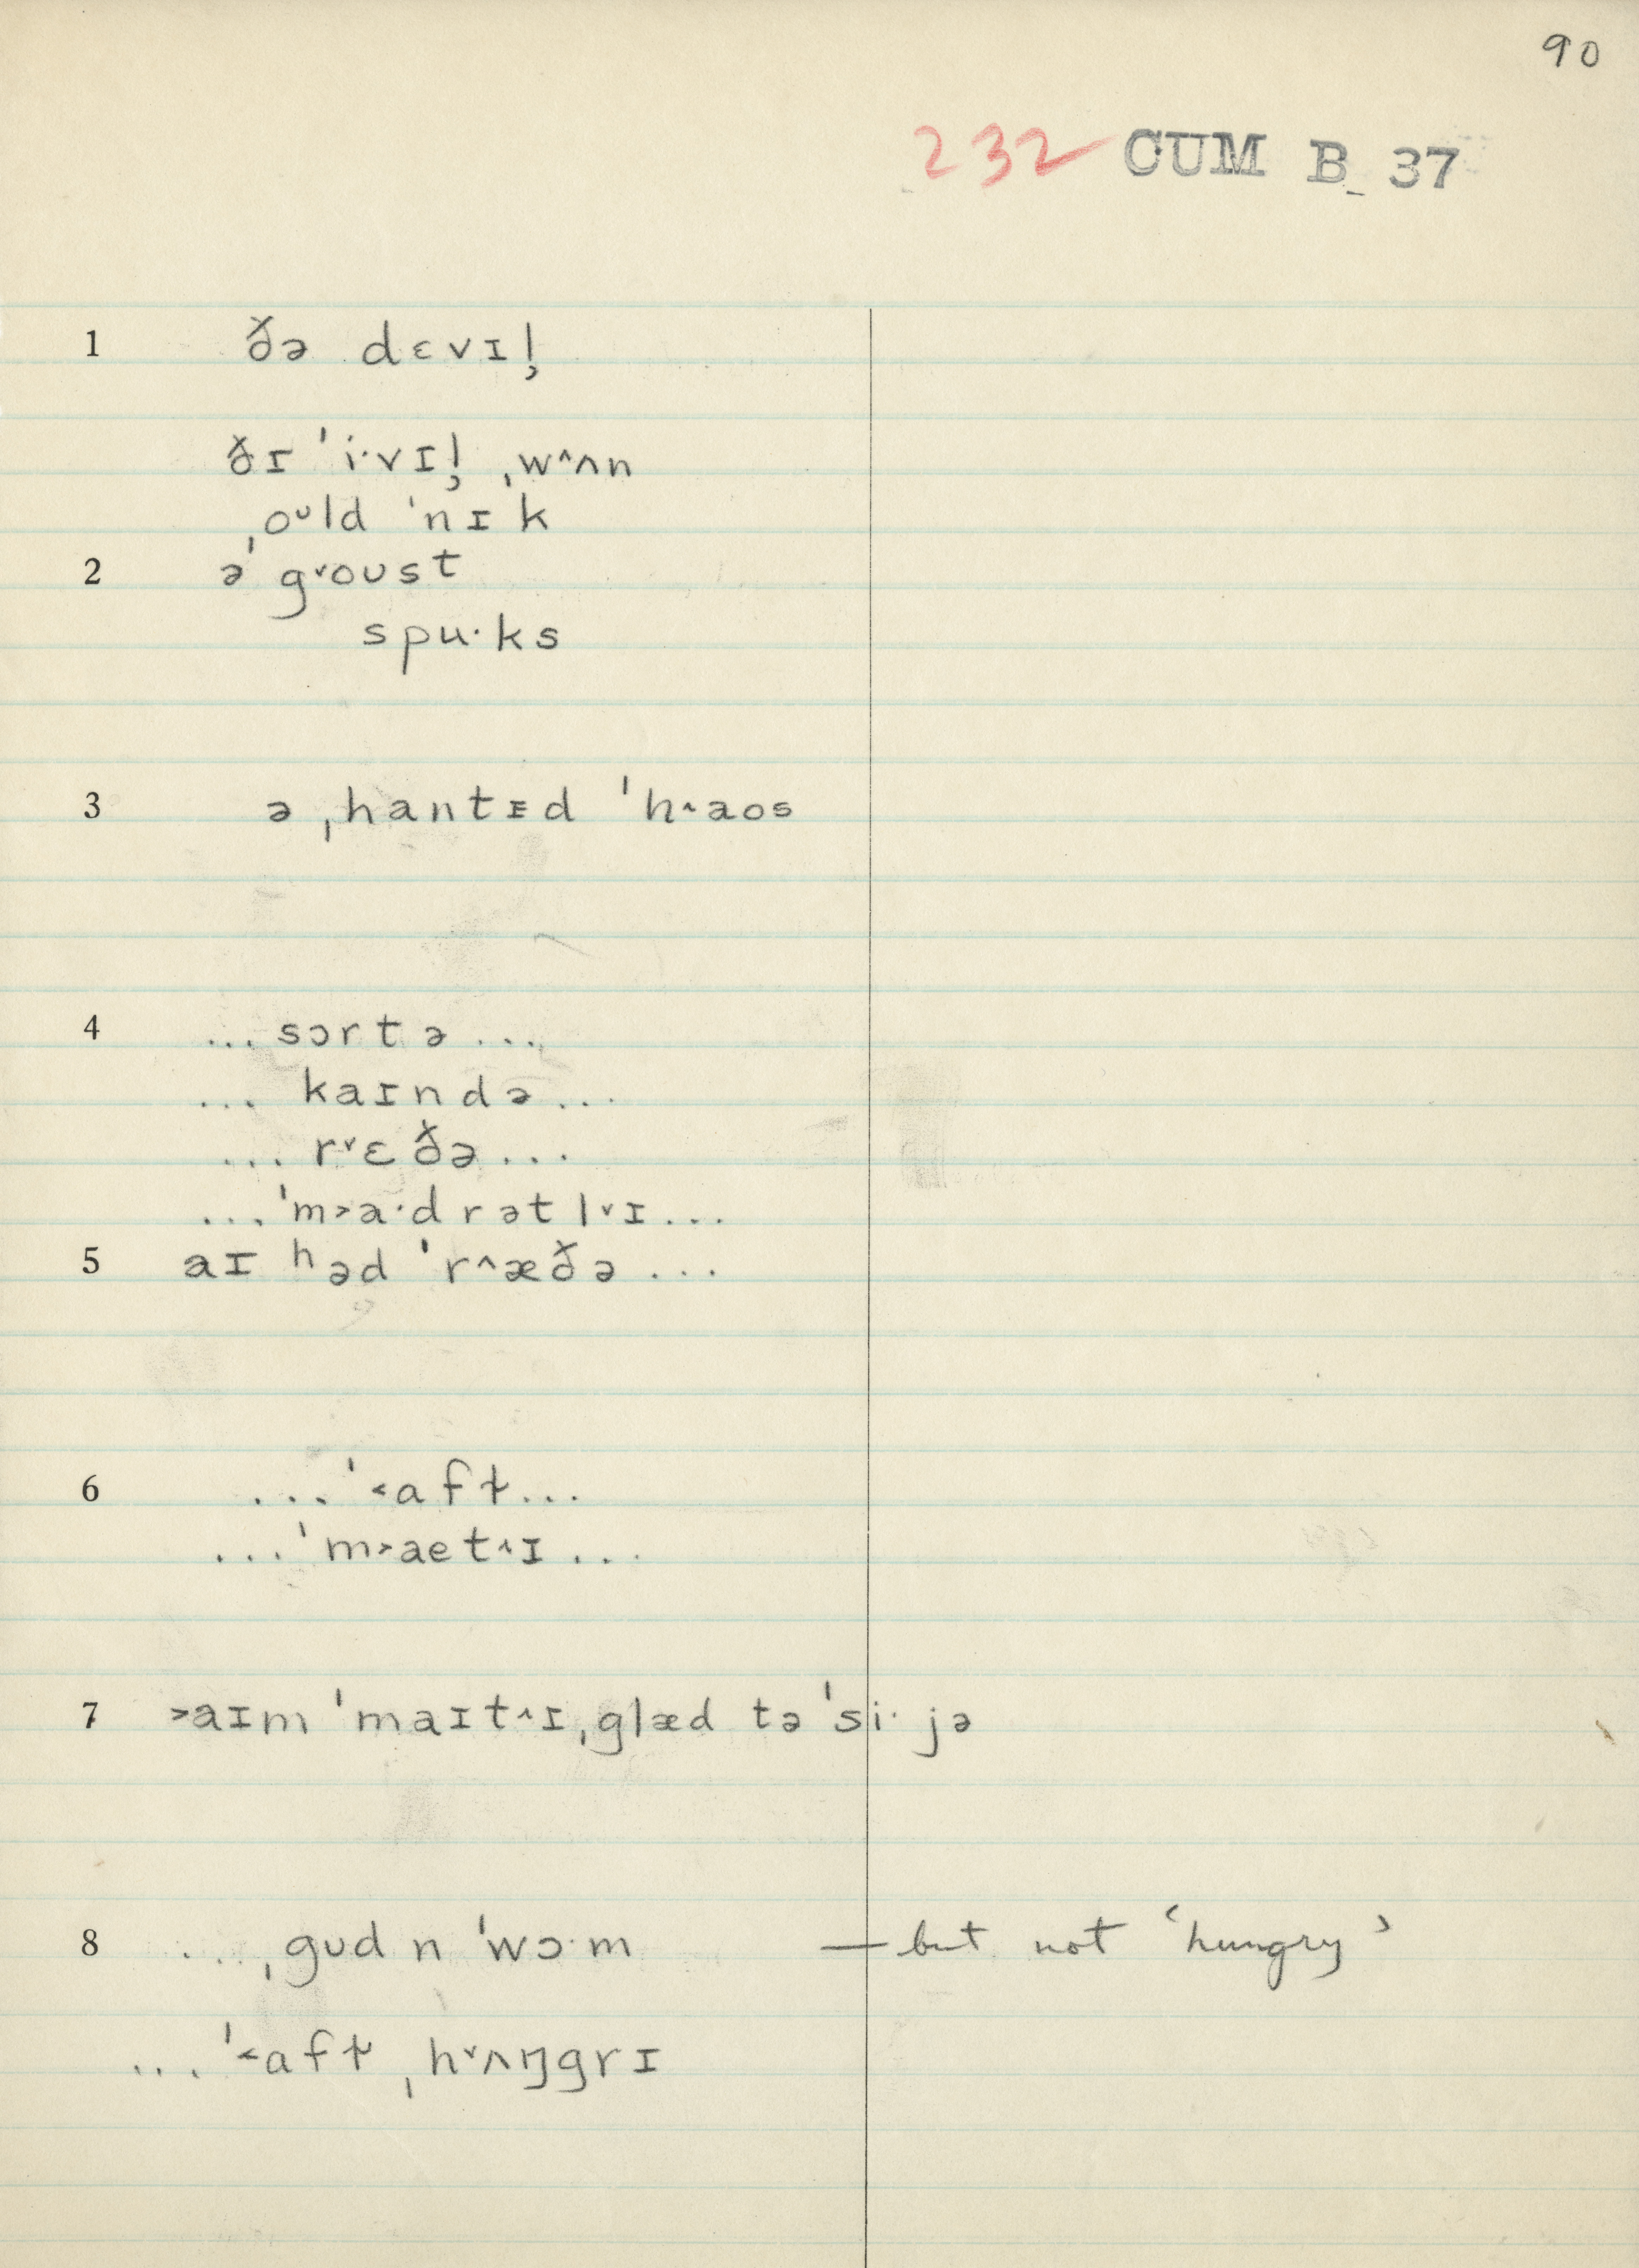 90
232 CUM B 37
1 ðə dɛvɪl̩
ðɪ ˈi·vɪl̩ ˌw^ʌn
ˌoᶸld ˈnɪk
2 ə gᵛoʊst
spu·ks
3 ə ˌhantɪd ˈh^aos
4 ...sɔrtə...
... kaɪndə...
... r˅ɛðə...
...ˈm˃a·drətl˅ɪ...
5 aɪ ʰəd ˈr^æðə...
6 ...ˈ˂aft...
...ˈm˃aet^ɪ...
7 ˃aɪm ˈmaɪt^ɪ ˌglæd tə ˈsi· jə
8 ...ˌgʊd n ˈwɔ·m — but not ‘hungry’
...ˈ˂aft ˌh˅ʌŋgrɪ